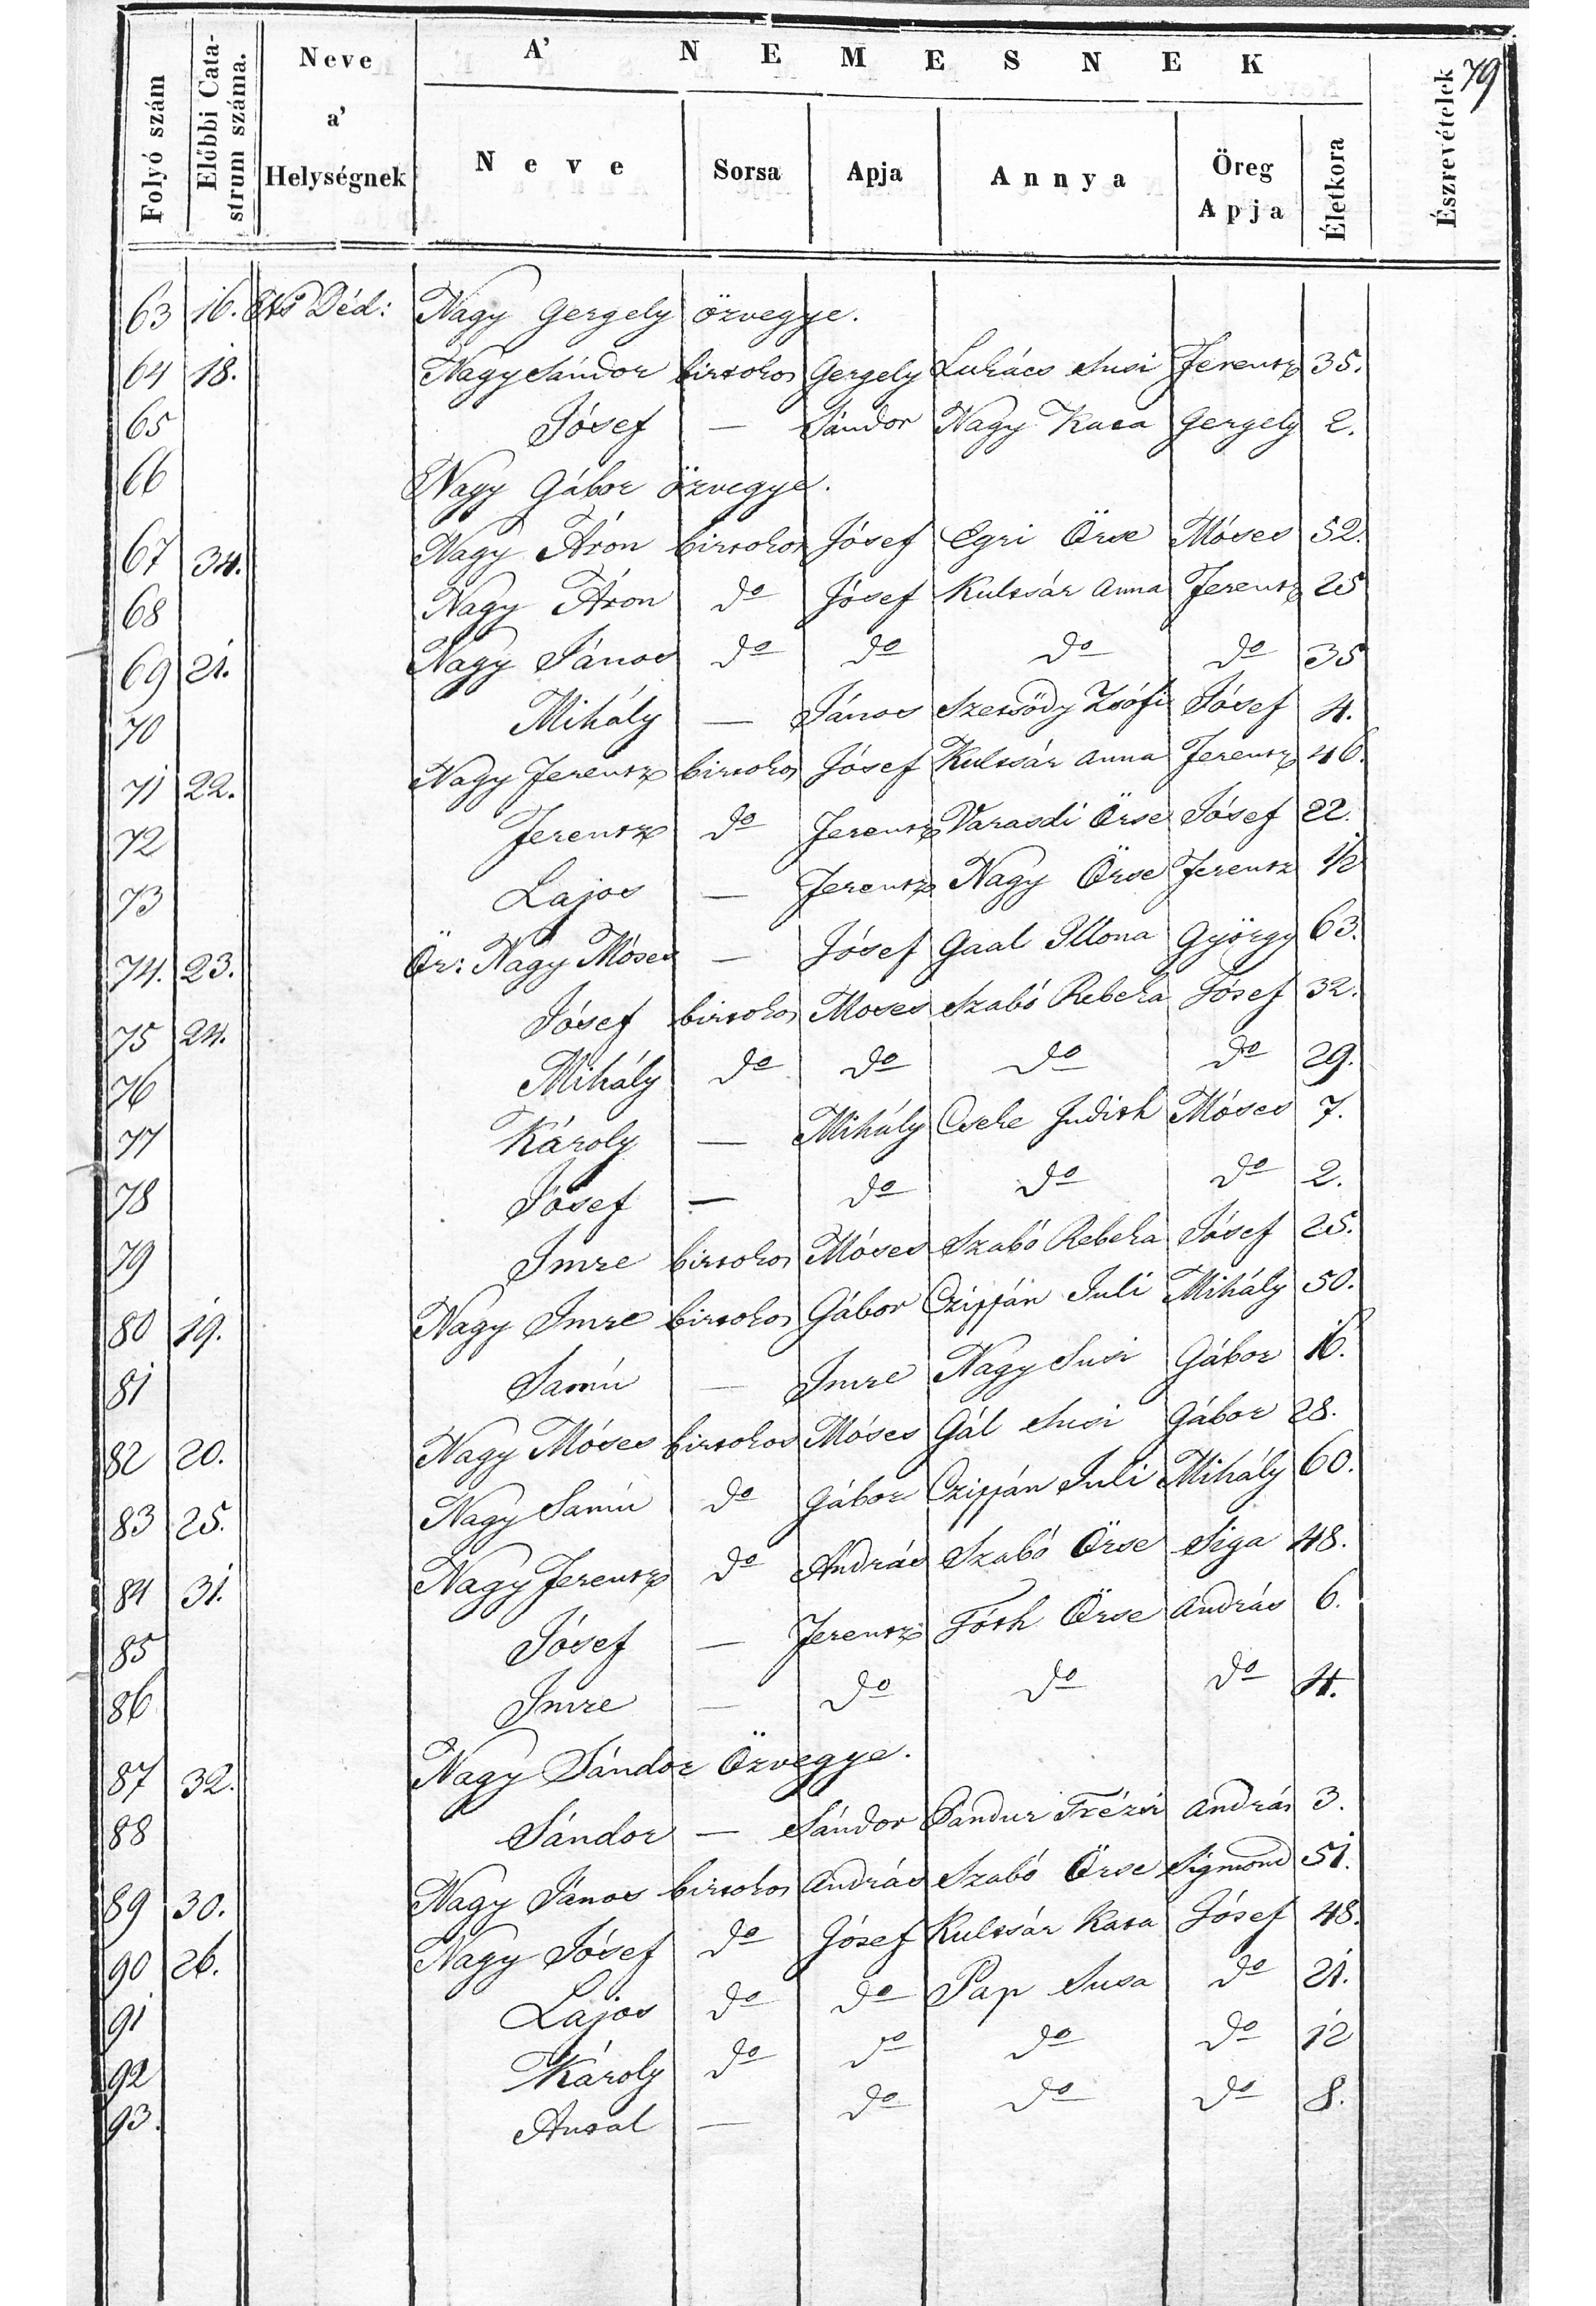 79
A' NEMESNEK
Folyó szám Előbbi Cata- strum száma. Neve a' Helységnek Neve Sorsa Apja Annya Öreg Apja Életkora Észrevételek
63 16. Déd: Nagy Gergely özvegye.
64 18. Nagy Sándor birtokos Gergely Lukács Susi Ferentz 35.
65 Jósef — Sándor Nagy Kata Gergely 2.
66 Nagy Gábor özvegye.
67 34. Nagy Áron birtokos Jósef Egri Örse Móses 52.
68 Nagy Áron do Jósef Kultsár Anna Ferentz 25
69 21. Nagy János do do do do 35
70 Mihály — János Szersödy Zsófi Jósef 4.
71 22. Nagy Ferentz birtokos Jósef Kultsár Anna Ferentz 46.
72 Ferentz do Ferentz Varasdi Örse Jósef 22.
73 Lajos — Ferentz Nagy Örse Ferentz 1/2
74. 23. Ör: Nagy Móses — Jósef Gaal Illona György 63.
75 24. Jósef birtokos Moses Szabó Rebeka Jósef 32.
76 Mihály do do do do 29.
77 Károly — Mihály Cseke Judith Móses 7.
78 Jósef — do do do 2.
79 Imre birtokos Móses Szabó Rebeka Jósef 25.
80 19. Nagy Imre birtokos Gábor Czipján Juli Mihály 50.
81 Samú — Imre Nagy Susi Gábor 16.
82 20. Nagy Móses birtokos Móses Gál Susi Gábor 28.
83 25. Nagy Samú do Gábor Czipján Juli Mihály 60.
84 31. Nagy Ferentz do András Szabó Örse Siga 48.
85 Jósef — Ferentz Tóth Örse András 6.
86 Imre — do do do 4.
87 32. Nagy Sándor Özvegye.
88 Sándor — Sándor Pandur Trézsi András 3.
89 30. Nagy János birtokos András Szabó Örse Sigmond 51.
90 26. Nagy Jósef do Jósef Kultsár Kata Jósef 48.
91 Lajos do do Pap Susa do 21.
92 Károly do do do do 12
93. Antal — do do do 8.